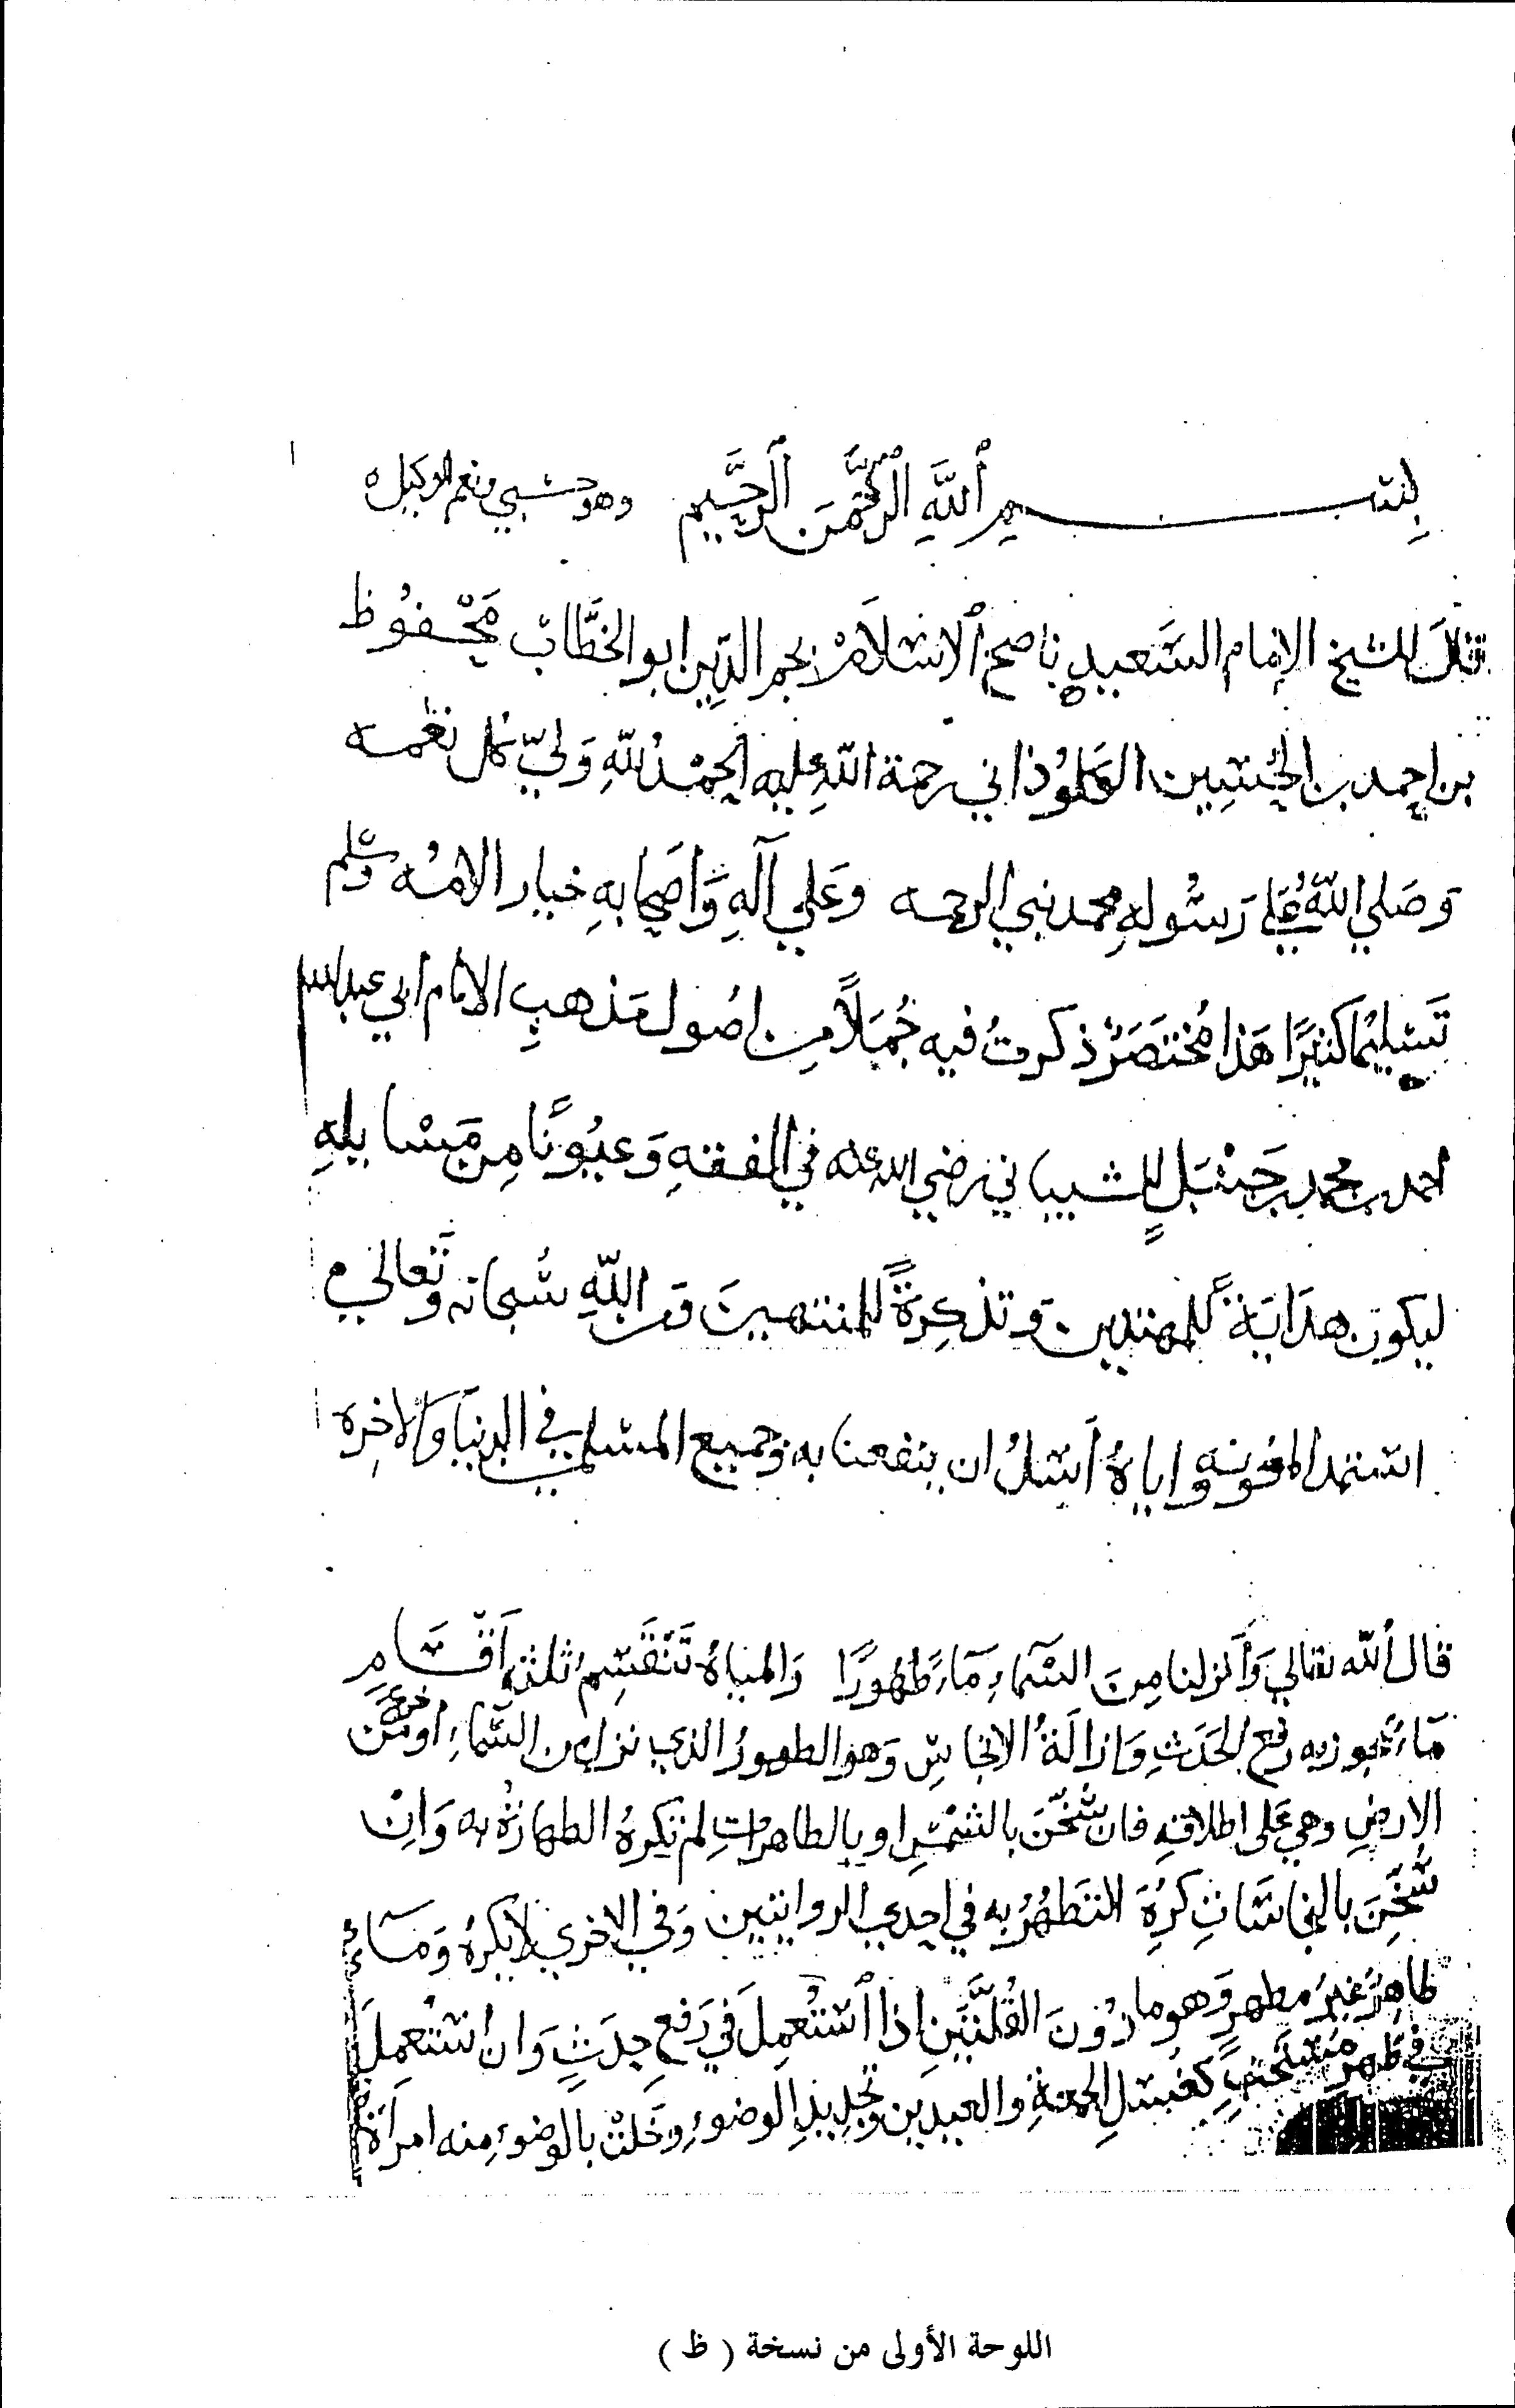 بسم الله الرحمن الرحيم وهو حسبي ونعم الوكيل
قال الشيخ الإمام السَّعيد ناصح الاسْلَام نجم الدين ابو الخطَّاب مَحْفُوظ
بن احمد بن الحُسَين الكَلْوُذاني رحمة الله عليه الحمْدُ للهِ وَليّ كل نعْمه
وَصَلي اللهُ عَلي رَسُولهِ محمد نبي الرحمه وعَلي آلهِ وَاَصحَابهِ خيار الامُه وسَلم
تَسْليمًا كثيرًا هَذا مُختَصَرٌ ذكرتُ فيه جُمَلاً من اصُول مَذهبِ الامَام ابي عبدالله
احمد بن محمد بن حَنْبَلٍ الشيباني رضي الله عنه في الفقهِ وَعيُونًا مِن مَسَايلهِ
ليكون هدَايَةً للمبتدين وتذكِرَةً للمنتهينَ ومن اللهِ سُبحانه وَتعالي
استمد المعُونه واياهُ اَسْلُ ان ينفعنا به وجميع المسْلمين في الدنيَا وَالاخِره
قال اللّه تعالي وَاَنزلنا مِنَ السَّمَاءِ مَآءً طَهُورًا وَالمياهُ تَنْقَسِمُ ثلثه اَقْسَامٍ
مَآءٌ يجوز به رَفع الحَدَثِ وَازالَةُ الانجَاسِ وَهو الطهورُ الذي نزل من السَّمَاءِ او نبَعَ مِن
الارضِ وهي عَلى اطلاقهِ فان سُخّنَ بالشمْسِ او بالطاهرَاتِ لم تكرهُ الطهَارَةُ به وَاِنْ
سُخّنَ بالنجاسَاتِ كُرِهَ التَطهُّرُ به في احدي الروايتين وَفي الاخري لا يكرهُ وَمَآءٌ
طاهِرٌ غيرُ مطهرٍ وَهو ما دُونَ القُلَّتَينِ اذا اسْتُعمِلَ في رَفع حدَثٍ وَان اسْتُعمِلَ
في طهرٍ مُسْتَحَبٍ كغسْلِ الجمعَةِ والعيدَين وَتجدِيدِ الوضوءِ وَخَلَتْ بالوضوءِ مِنه امرَاَةٌ
اللوحة الأولى من نسخة ( ظ )